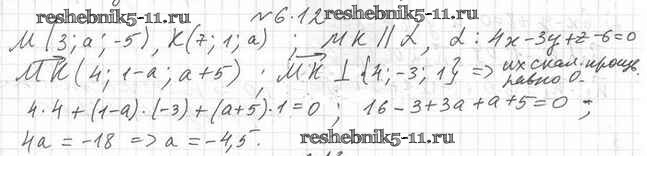 reshebnik5-11.ru №6.12 reshebnik5-11.ru
M(3; a; -5), K(7; 1; a) ; MK || α, α: 4x-3y+z-6=0
MK(4; 1-a; a+5) ; MK ⊥ {4; -3; 1} => их скал. произв. равно 0.
4·4 + (1-a)·(-3) + (a+5)·1=0 ; 16-3+3a+a+5=0 ;
4a = -18 => a = -4,5. reshebnik5-11.ru